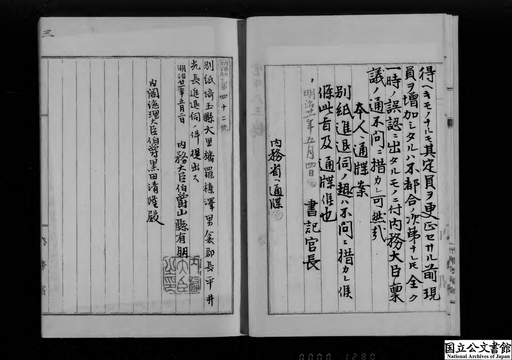 得ヘキモノナルモ其定員ヲ更正セサル前現
員ヲ増加シタルハ不都合ノ次第ナレトモ全ク
一時ノ誤認ニ出タルモノニ付内務大臣稟
議ノ通不問ニ措カレ可然哉
本人ヘ通牒案
別紙進退伺ノ趣ハ不問ニ措カレ候
條此旨及通牒候也
明治廿一年五月四日 書記官長
内務省ヘ通牒
四十二號
別紙埼玉縣大里幡羅榛澤男衾郡長平井
光長進退伺ノ件提出ス
明治廿一年五月 日 内務大臣伯爵山縣有朋
内閣總理大臣伯爵黒田清隆殿
三
国立公文書館
National Archives of Japan